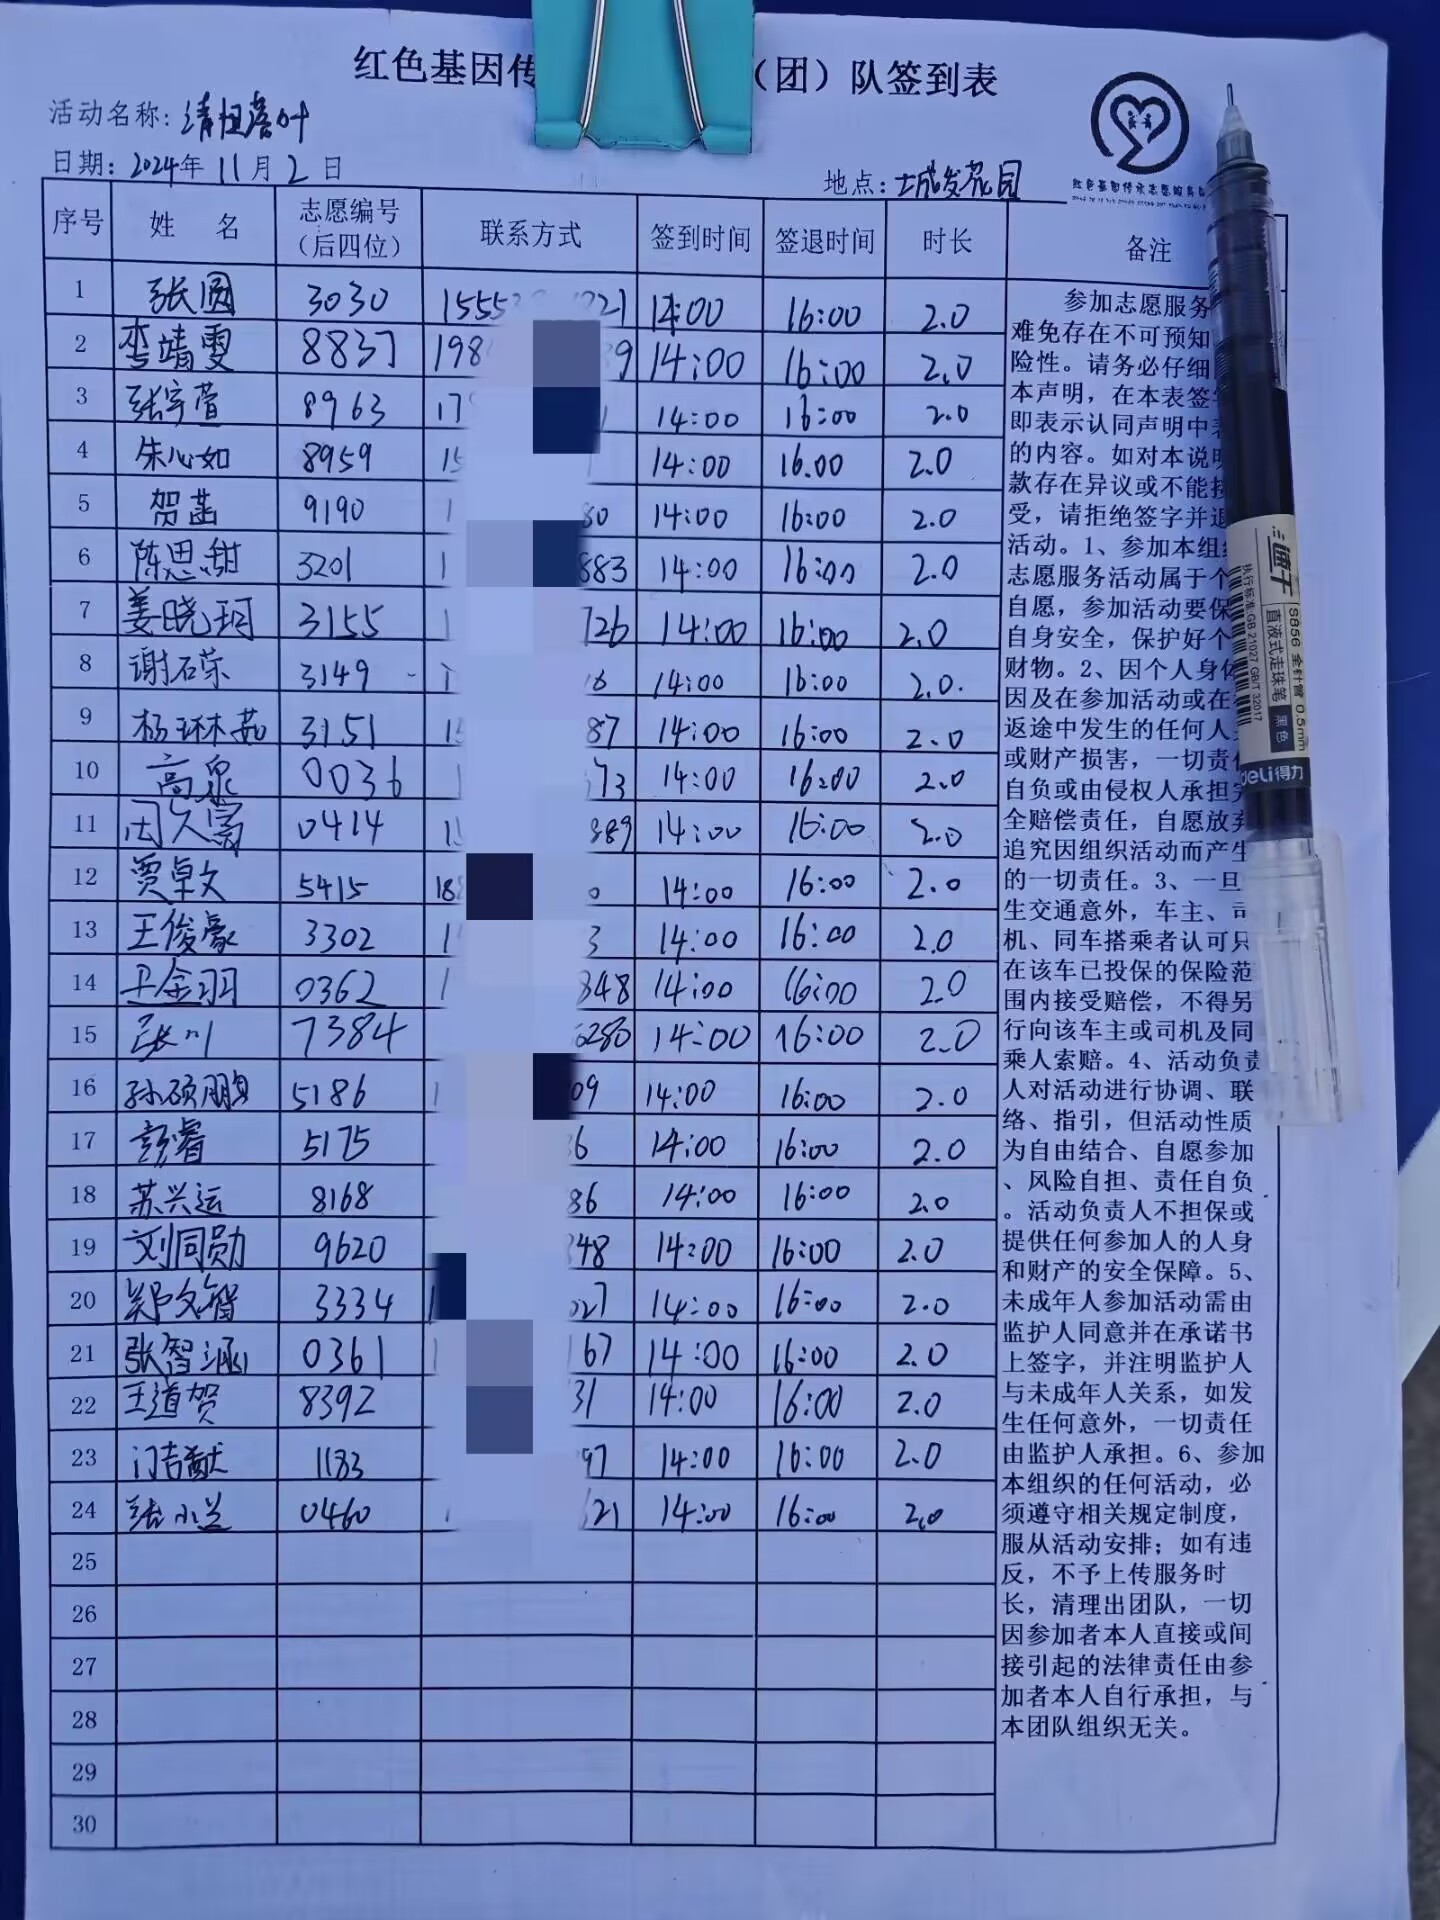 红色基因传
（团）队签到表
活动名称: 清扫落叶
日期: 2024年 11月 2 日
地点: 城发花园
序号 姓 名 志愿编号（后四位） 联系方式 签到时间 签退时间 时长 备注
1 张圆 3030 1555 221 14:00 16:00 2.0
2 李靖雯 8837 198 39 14:00 16:00 2.0
3 张宇萱 8963 17 1 14:00 16:00 2.0
4 朱心如 8959 15 14:00 16.00 2.0
5 贺菡 9190 1 80 14:00 16:00 2.0
6 陈思甜 3201 1 883 14:00 16:00 2.0
7 姜晓珂 3155 1 726 14:00 16:00 2.0
8 谢石荣 3149 1 16 14:00 16:00 2.0.
9 杨琳茹 3151 15 87 14:00 16:00 2.0
10 高泉 0036 1 73 14:00 16:00 2.0
11 0414 15 389 14:00 16:00 2.0
12 贾卓文 5415 188 0 14:00 16:00 2.0
13 王俊豪 3302 1 3 14:00 16:00 2.0
14 王金羽 0362 1 848 14:00 16:00 2.0
15 张川 7384 6280 14:00 16:00 2.0
16 孙硕鹏 5186 1 09 14:00 16:00 2.0
17 彭睿 5175 6 14:00 16:00 2.0
18 苏兴运 8168 86 14:00 16:00 2.0
19 刘同勋 9620 348 14:00 16:00 2.0
20 郑文智 3334 1 027 14:00 16:00 2.0
21 张智涵 0361 1 167 14:00 16:00 2.0
22 王道贺 8392 31 14:00 16:00 2.0
23 门吉献 1183 97 14:00 16:00 2.0
24 张小兰 0460 1 621 14:00 16:00 2.0
25
26
27
28
29
30
参加志愿服务
难免存在不可预知
险性。请务必仔细
本声明，在本表签字
即表示认同声明中
的内容。如对本说明
款存在异议或不能接
受，请拒绝签字并退
活动。1、参加本组
志愿服务活动属于个
自愿，参加活动要保
自身安全，保护好个
财物。2、因个人身体
因及在参加活动或在
返途中发生的任何人
或财产损害，一切责任
自负或由侵权人承担完
全赔偿责任，自愿放弃
追究因组织活动而产生
的一切责任。3、一旦
生交通意外，车主、司
机、同车搭乘者认可只
在该车已投保的保险范
围内接受赔偿，不得另
行向该车主或司机及同
乘人索赔。4、活动负责
人对活动进行协调、联
络、指引，但活动性质
为自由结合、自愿参加
、风险自担、责任自负
。活动负责人不担保或
提供任何参加人的人身
和财产的安全保障。5、
未成年人参加活动需由
监护人同意并在承诺书
上签字，并注明监护人
与未成年人关系，如发
生任何意外，一切责任
由监护人承担。6、参加
本组织的任何活动，必
须遵守相关规定制度，
服从活动安排；如有违
反，不予上传服务时
长，清理出团队，一切
因参加者本人直接或间
接引起的法律责任由参
加者本人自行承担，与
本团队组织无关。
S856 全针管 0.5mm
直液式走珠笔 黑色
执行标准:GB 21027.GB/T 32017
deli得力